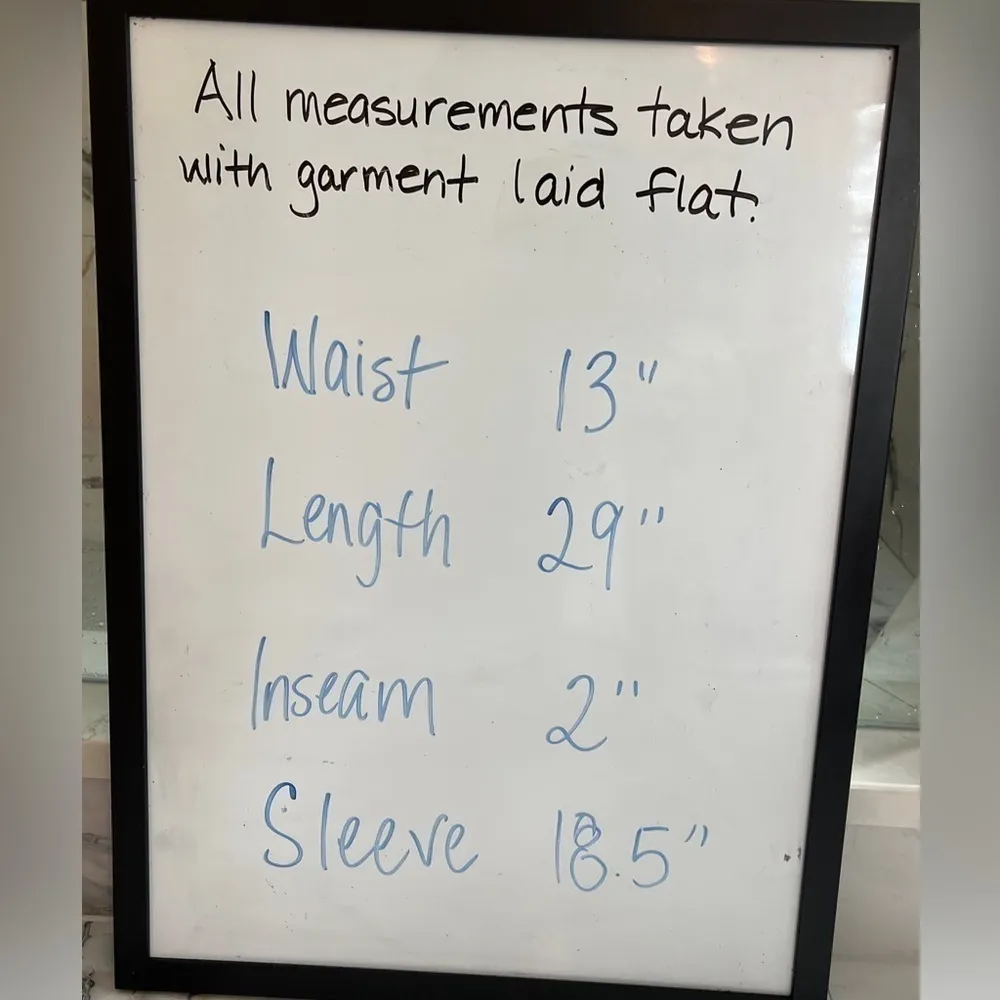 All measurements taken
with garment laid flat.
Waist 13"
Length 29"
Inseam 2"
Sleeve 18.5"